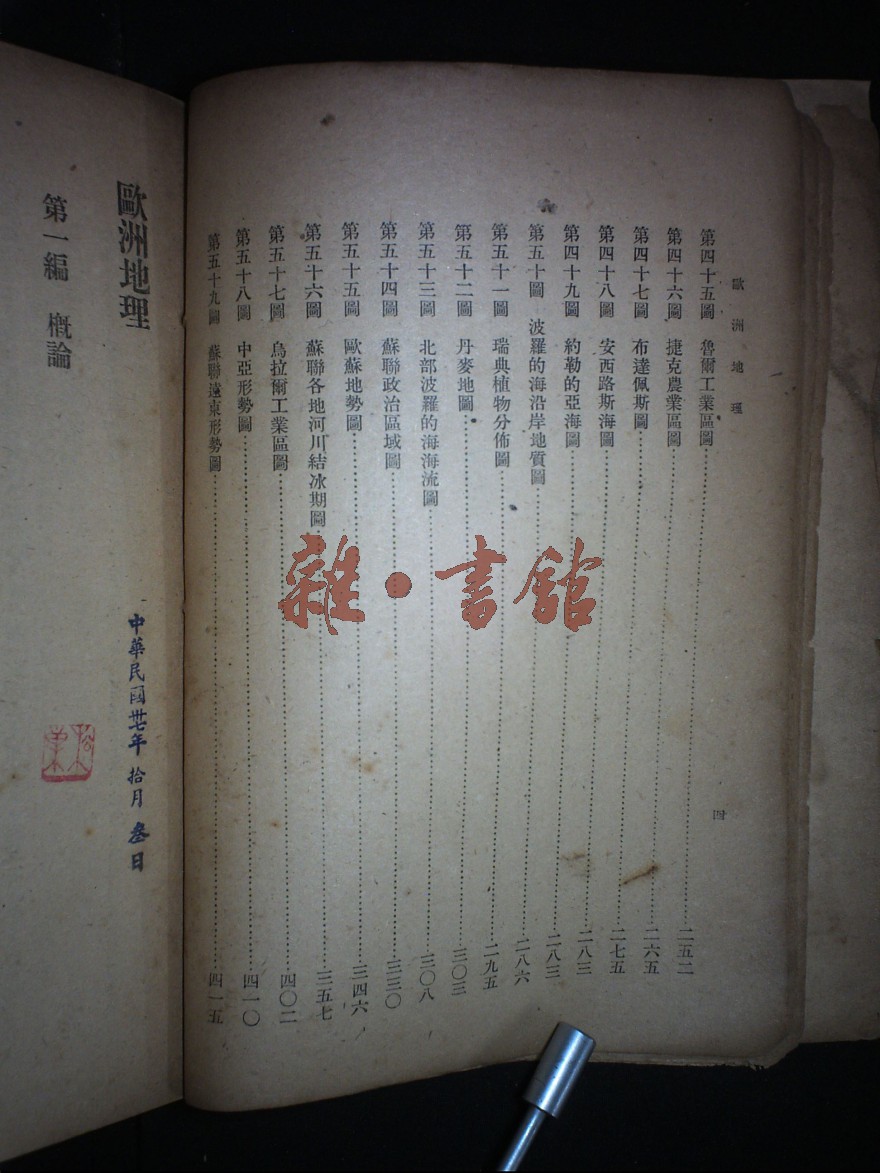 歐洲地理
四
第四十五圖 魯爾工業區圖……二五二
第四十六圖 捷克農業區圖……二六五
第四十七圖 布達佩斯圖……二七五
第四十八圖 安西路斯海圖……二八三
第四十九圖 約勒的亞海圖……二八三
第五十圖 波羅的海沿岸地質圖……二八六
第五十一圖 瑞典植物分佈圖……二九五
第五十二圖 丹麥地圖……三〇三
第五十三圖 北部波羅的海海流圖……三〇八
第五十四圖 蘇聯政治區域圖……三三〇
第五十五圖 歐蘇地勢圖……三四六
第五十六圖 蘇聯各地河川結冰期圖……三五七
第五十七圖 烏拉爾工業區圖……四〇二
第五十八圖 中亞形勢圖……四一〇
第五十九圖 蘇聯遠東形勢圖……四一五
雜·書館
歐洲地理
中華民國卅七年 拾月 叁日
第一編 概論